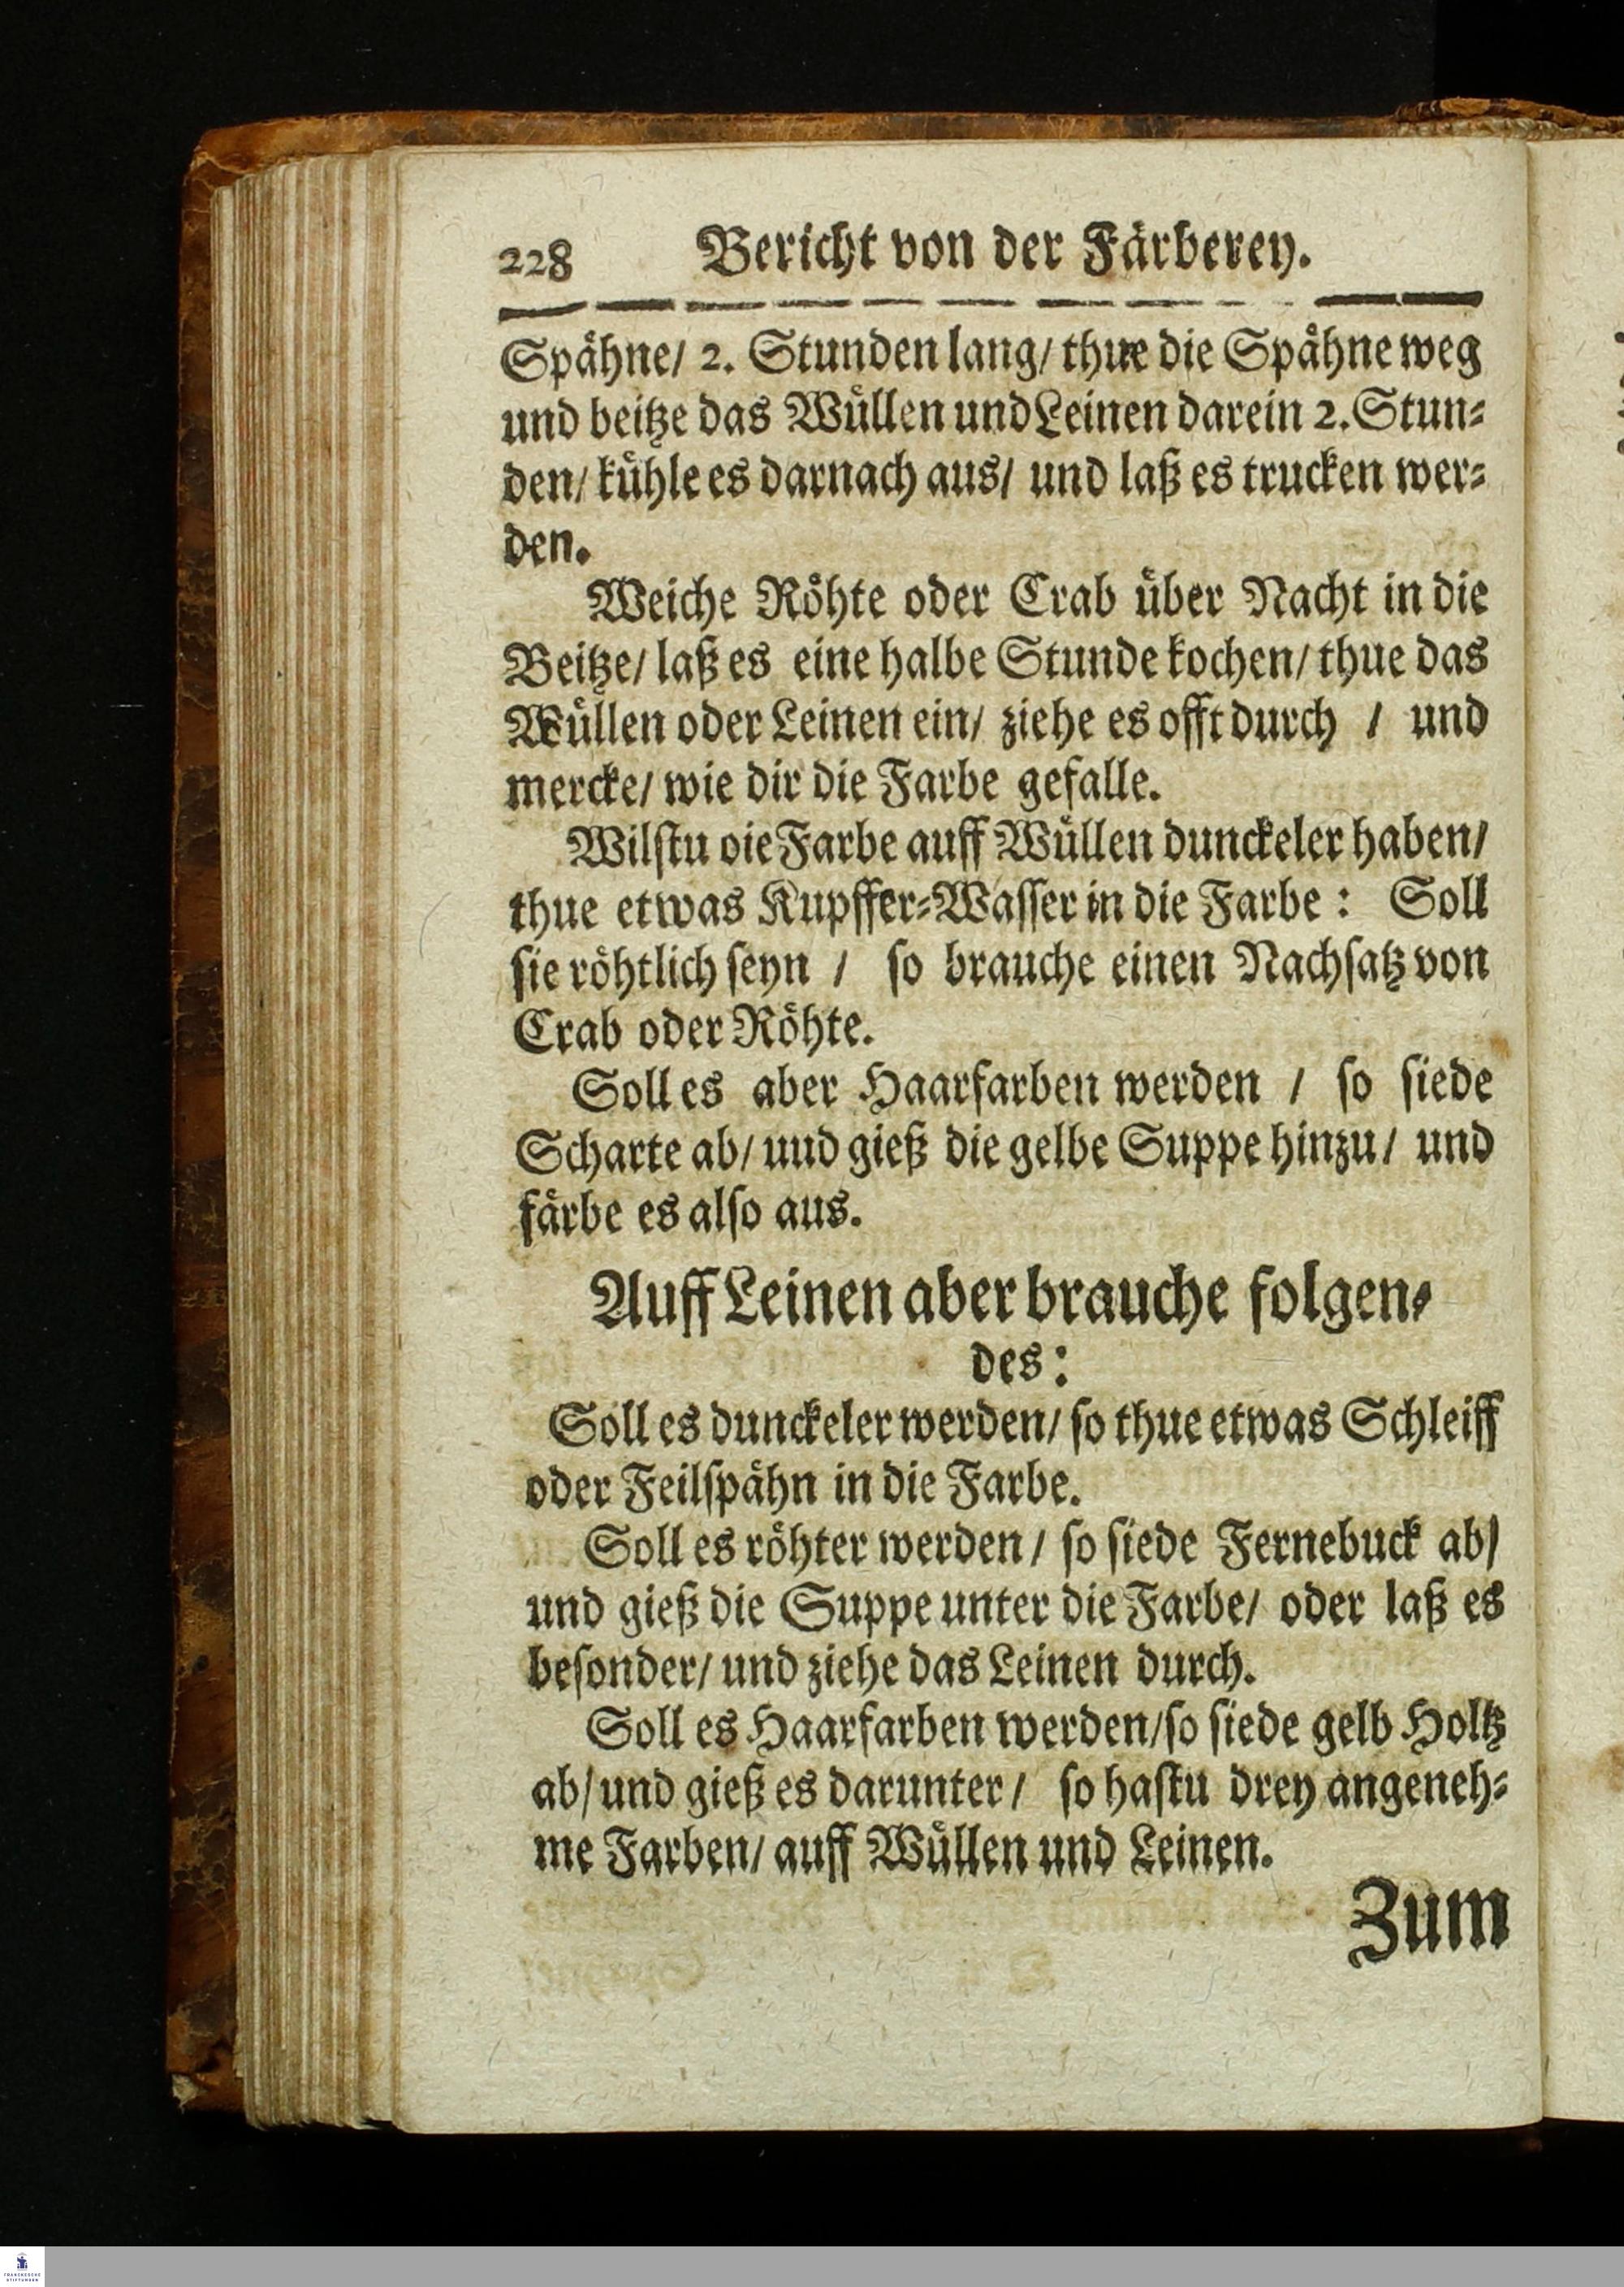 228 Bericht von der Färberey.
Spähne/ 2. Stunden lang/ thue die Spähne weg
und beitze das Wüllen und Leinen darein 2. Stun⸗
den/ kühle es darnach aus/ und laß es trucken wer⸗
den.
Weiche Röhte oder Crab über Nacht in die
Beitze/ laß es eine halbe Stunde kochen/ thue das
Wüllen oder Leinen ein/ ziehe es offt durch / und
mercke/ wie dir die Farbe gefalle.
Wilſtu oie Farbe auff Wüllen dunckeler haben/
thue etwas Kupffer⸗Waſſer in die Farbe: Soll
ſie röhtlich ſeyn / ſo brauche einen Nachſatz von
Crab oder Röhte.
Soll es aber Haarfarben werden / ſo ſiede
Scharte ab/ uud gieß die gelbe Suppe hinzu/ und
färbe es alſo aus.
Auff Leinen aber brauche folgen⸗
des:
Soll es dunckeler werden/ ſo thue etwas Schleiff
oder Feilſpähn in die Farbe.
Soll es röhter werden/ ſo ſiede Fernebuck ab/
und gieß die Suppe unter die Farbe/ oder laß es
beſonder/ und ziehe das Leinen durch.
Soll es Haarfarben werden/ſo ſiede gelb Holtz
ab/ und gieß es darunter/ ſo haſtu drey angeneh⸗
me Farben/ auff Wüllen und Leinen.
Zum
FRANCKESCHE
STIFTUNGEN